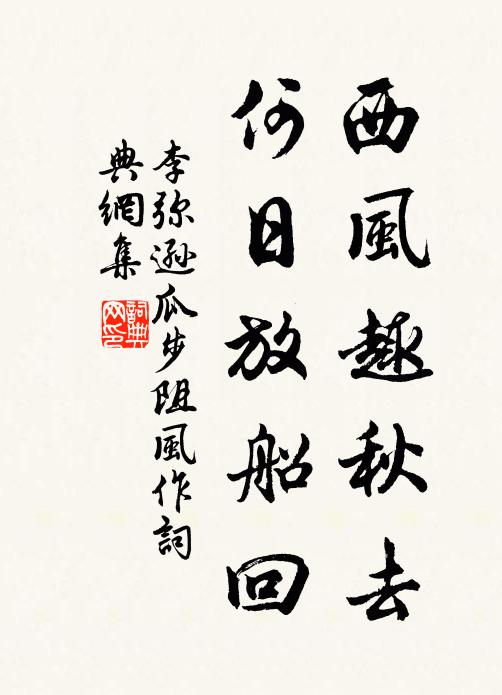 西風趣秋去
何日放船回
李弥遜瓜步阻風作詞
典網集
詞典
网印